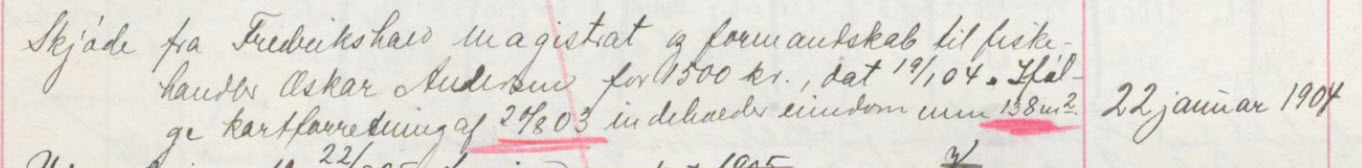 Skjøde fra Fredrikshald magistrat og formandskab til fiske-
handler Oskar Andersen for 1500 kr., dat 19/1 04. Iføl-
ge kartforretning af 24/8 03 indeholder eiendommen 138 m². 22 januar 1904